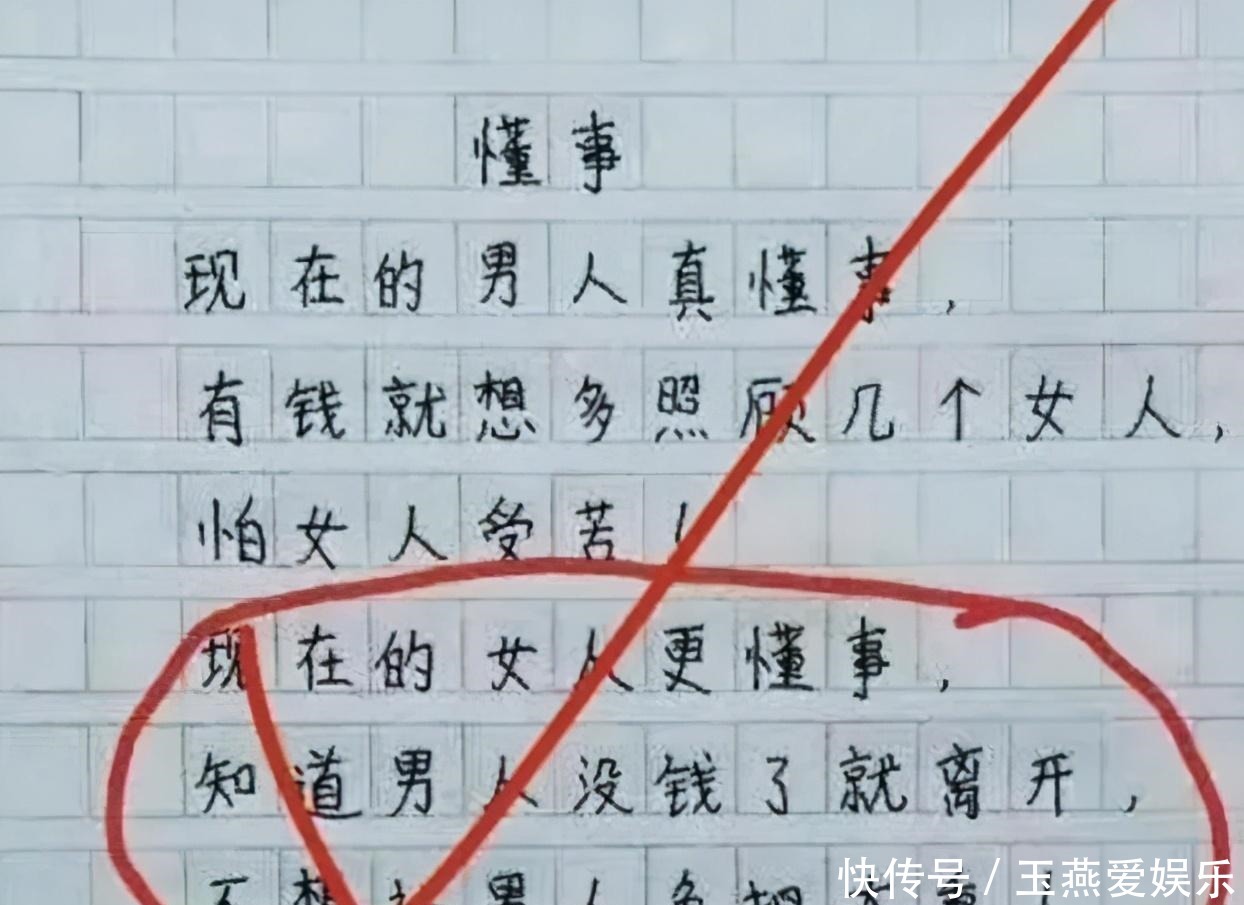 懂事
现在的男人真懂事,
有钱就想多照顾几个女人,
怕女人受苦!
现在的女人更懂事,
知道男人没钱了就离开,
快传号 / 玉燕爱娱乐